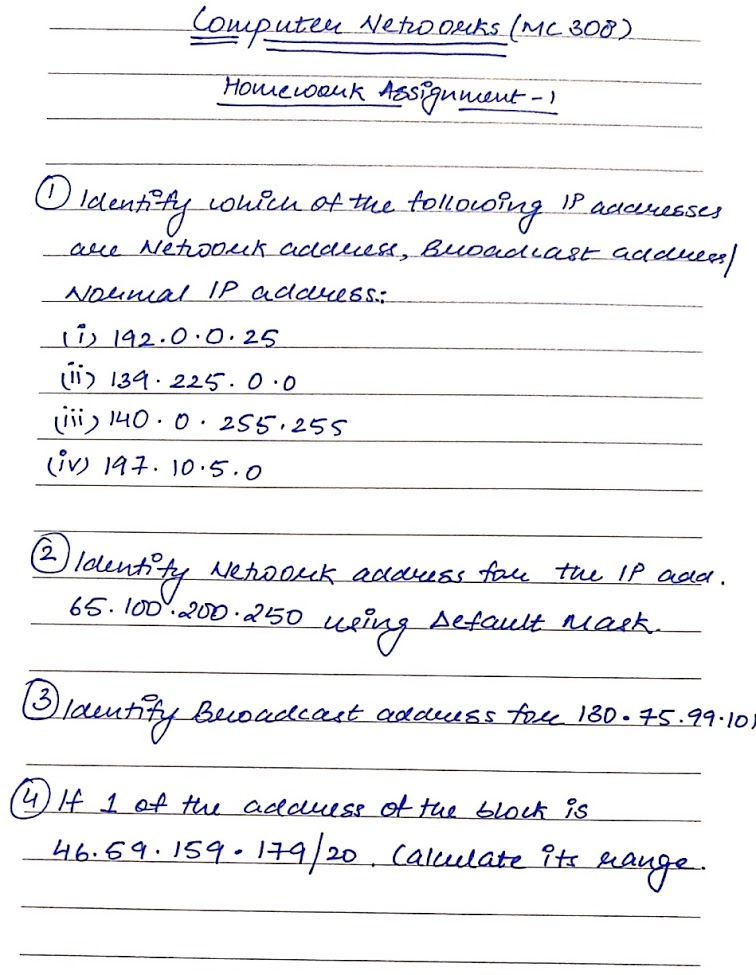 Computer Networks (MC 308)
Homework Assignment - 1
① Identify which of the following IP addresses
are Network address, Broadcast address/
Normal IP address:
(i) 192.0.0.25
(ii) 139.225.0.0
(iii) 140.0.255.255
(iv) 197.10.5.0
② Identify Network address for the IP add.
65.100.200.250 using Default Mask.
③ Identify Broadcast address for 130.75.99.101
④ If 1 of the address of the block is
46.59.159.179/20. Calculate its range.